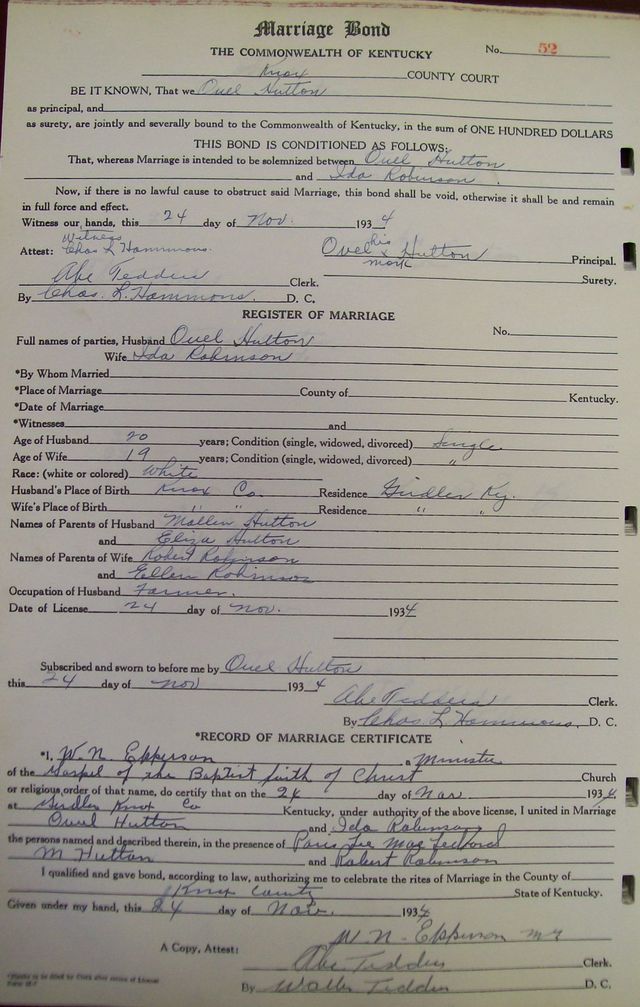 Marriage Bond
THE COMMONWEALTH OF KENTUCKY No. 52
Knox COUNTY COURT
BE IT KNOWN, That we Ouel Hutton
as principal, and
as surety, are jointly and severally bound to the Commonwealth of Kentucky, in the sum of ONE HUNDRED DOLLARS
THIS BOND IS CONDITIONED AS FOLLOWS:
That, whereas Marriage is intended to be solemnized between Ouel Hutton
and Ida Robinson.
Now, if there is no lawful cause to obstruct said Marriage, this bond shall be void, otherwise it shall be and remain
in full force and effect.
Witness our hands, this 24 day of Nov. 1934
Witness
Attest: Chas L Hammons. Ouel his x mark Hutton Principal.
Abe Tedders Clerk. Surety.
By Chas. L. Hammons. D. C.
REGISTER OF MARRIAGE
No.
Full names of parties, Husband Ouel Hutton
Wife Ida Robinson
*By Whom Married
*Place of Marriage County of Kentucky.
*Date of Marriage
*Witnesses and
Age of Husband 20 years; Condition (single, widowed, divorced) Single
Age of Wife 19 years; Condition (single, widowed, divorced) "
Race: (white or colored) White
Husband's Place of Birth Knox Co. Residence Girdler Ky.
Wife's Place of Birth " " Residence " "
Names of Parents of Husband Hutton
and Eliza Hutton
Names of Parents of Wife Robert Robinson
and Ellen Robinson
Occupation of Husband Farmer.
Date of License 24 day of Nov. 1934
Subscribed and sworn to before me by Ouel Hutton
this 24 day of Nov 1934
Abe Tedders Clerk.
By Chas. L Hammons, D. C.
*RECORD OF MARRIAGE CERTIFICATE
*I, W. N. Epperson a Minister
of the Gospel of the Baptist faith of Christ Church
or religious order of that name, do certify that on the 24 day of Nov 1934,
at Girdler Knox Co Kentucky, under authority of the above license, I united in Marriage
Ouel Hutton and Ida Robinson
the persons named and described therein, in the presence of
M Hutton and Robert Robinson
I qualified and gave bond, according to law, authorizing me to celebrate the rites of Marriage in the County of
Knox County State of Kentucky.
Given under my hand, this 24 day of Nov. 1934
W N - Epperson
A Copy, Attest: Abe Tedders Clerk.
By Tedders D. C.